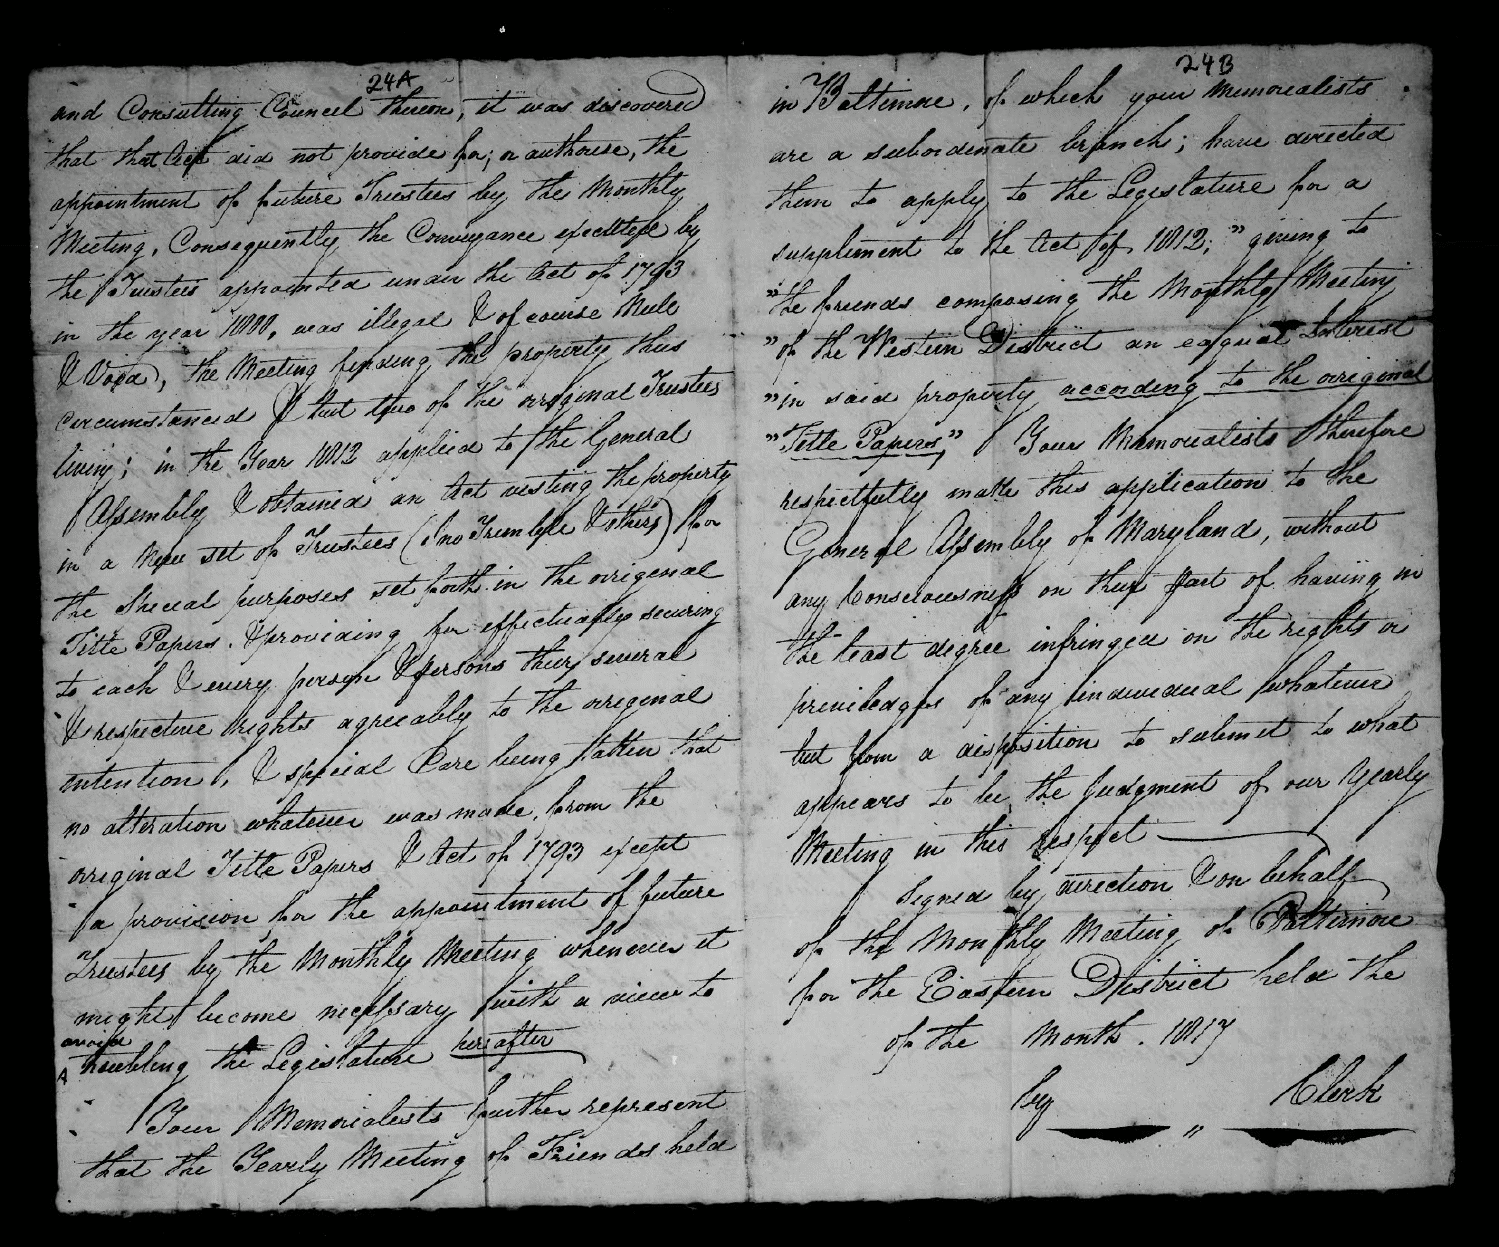 24A
and Consulting Councel thereon, it was discovered
that that Act did not provide for, or authorise, the
appointment of future Trustees by the Monthly
Meeting, Consequently the Conveyance executed by
the Trustees appointed under the Act of 1793
in the year 1800, was illegal & of course Null
& Void, the Meeting finding the property thus
circumstanced & but two of the original Trustees
living; in the Year 1812 applied to the General
Assembly & obtained an Act vesting the property
in a New set of Trustees (Jno Trimble & others) for
the special purposes set forth in the origenal
Title Papers. & providing for effectually securing
to each & every person & persons their several
& respective rights agreeably to the origenal
intention, & special Care being taken that
no alteration whatever was made, from the
original Title Papers & Act of 1793 except
a provision for the appointment of future
Trustees by the Monthly Meeting whenever it
might become necessary with a view to
avoid
troubling the Legislature hereafter
Your Memorialists further represent
that the Yearly Meeting of Friends held
24B
in Baltimore, of which your Memorialists
are a subordenate branch; have directed
them to apply to the Legislature for a
suppliment to the Act of 1812; "giving to
"the friends composing the Monthly Meeting
"of the Western District an eaqual Interest
"in said property according to the original
"Title Papers," Your Memorialists therefore
respectfully make this application to the
General Assembly of Maryland, without
any Consciousness on their part of having in
the least degree infringed on the rights or
priviledges of any individual whatever
but from a disposition to submit to what
appears to be the Judgment of our Yearly
Meeting in this respect
Signed by direction & on behalf
of the Monthly Meeting of Baltimore
for the Eastern District held the
of the Month. 1817
by Clerk